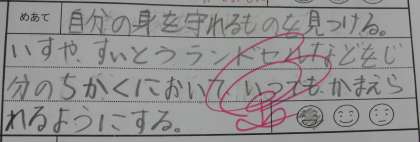 めあて 自分の身を守れるものを見つける。
いすや、すいとうランドセルなどをじ
分のちかくにおいて、いつでも、かまえら
れるようにする。